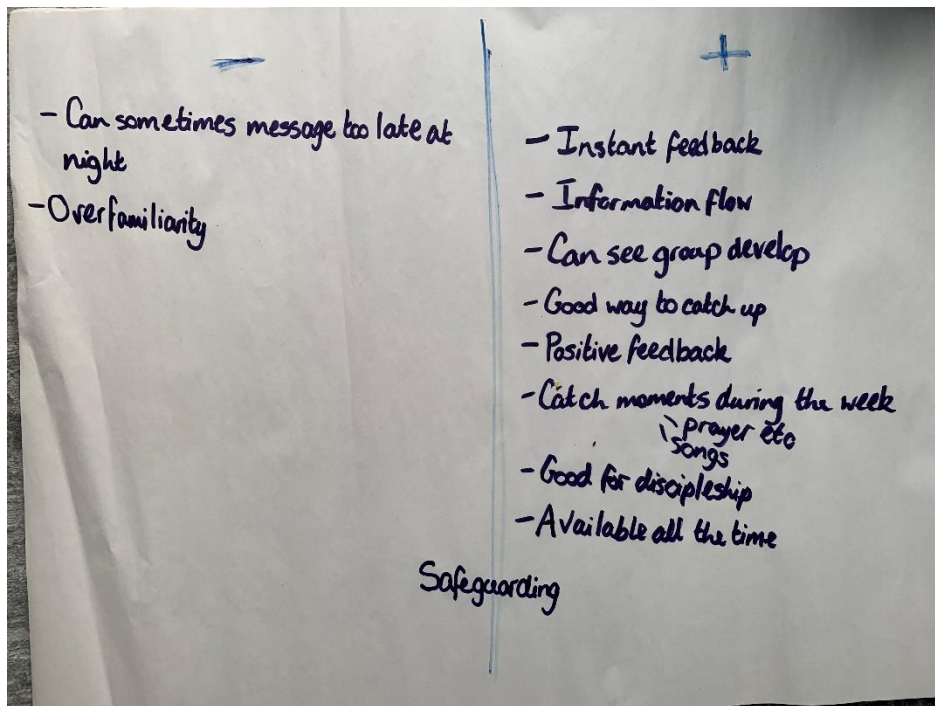 -
- Can sometimes message too late at
night
- Overfamiliarity
+
- Instant feedback
- Information flow
- Can see group develop
- Good way to catch up
- Positive feedback
- Catch moments during the week
prayer etc
songs
- Good for discipleship
- Available all the time
Safeguarding